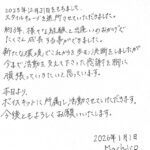 2025年12月31日をもちまして、
スタイルキューブを退所させていただきました。
約8年、様々な経験と出逢いのおかげで
たくさん成長する事ができました。
新たな環境でこれからも歩む決断をしましたが
今まで、活動を支えて下さった感謝を胸に
頑張っていきたいと思っています。
本日より、
ボイスキットに所属し活動させていただきます。
今後ともよろしくお願い致します。
2026年1月1日